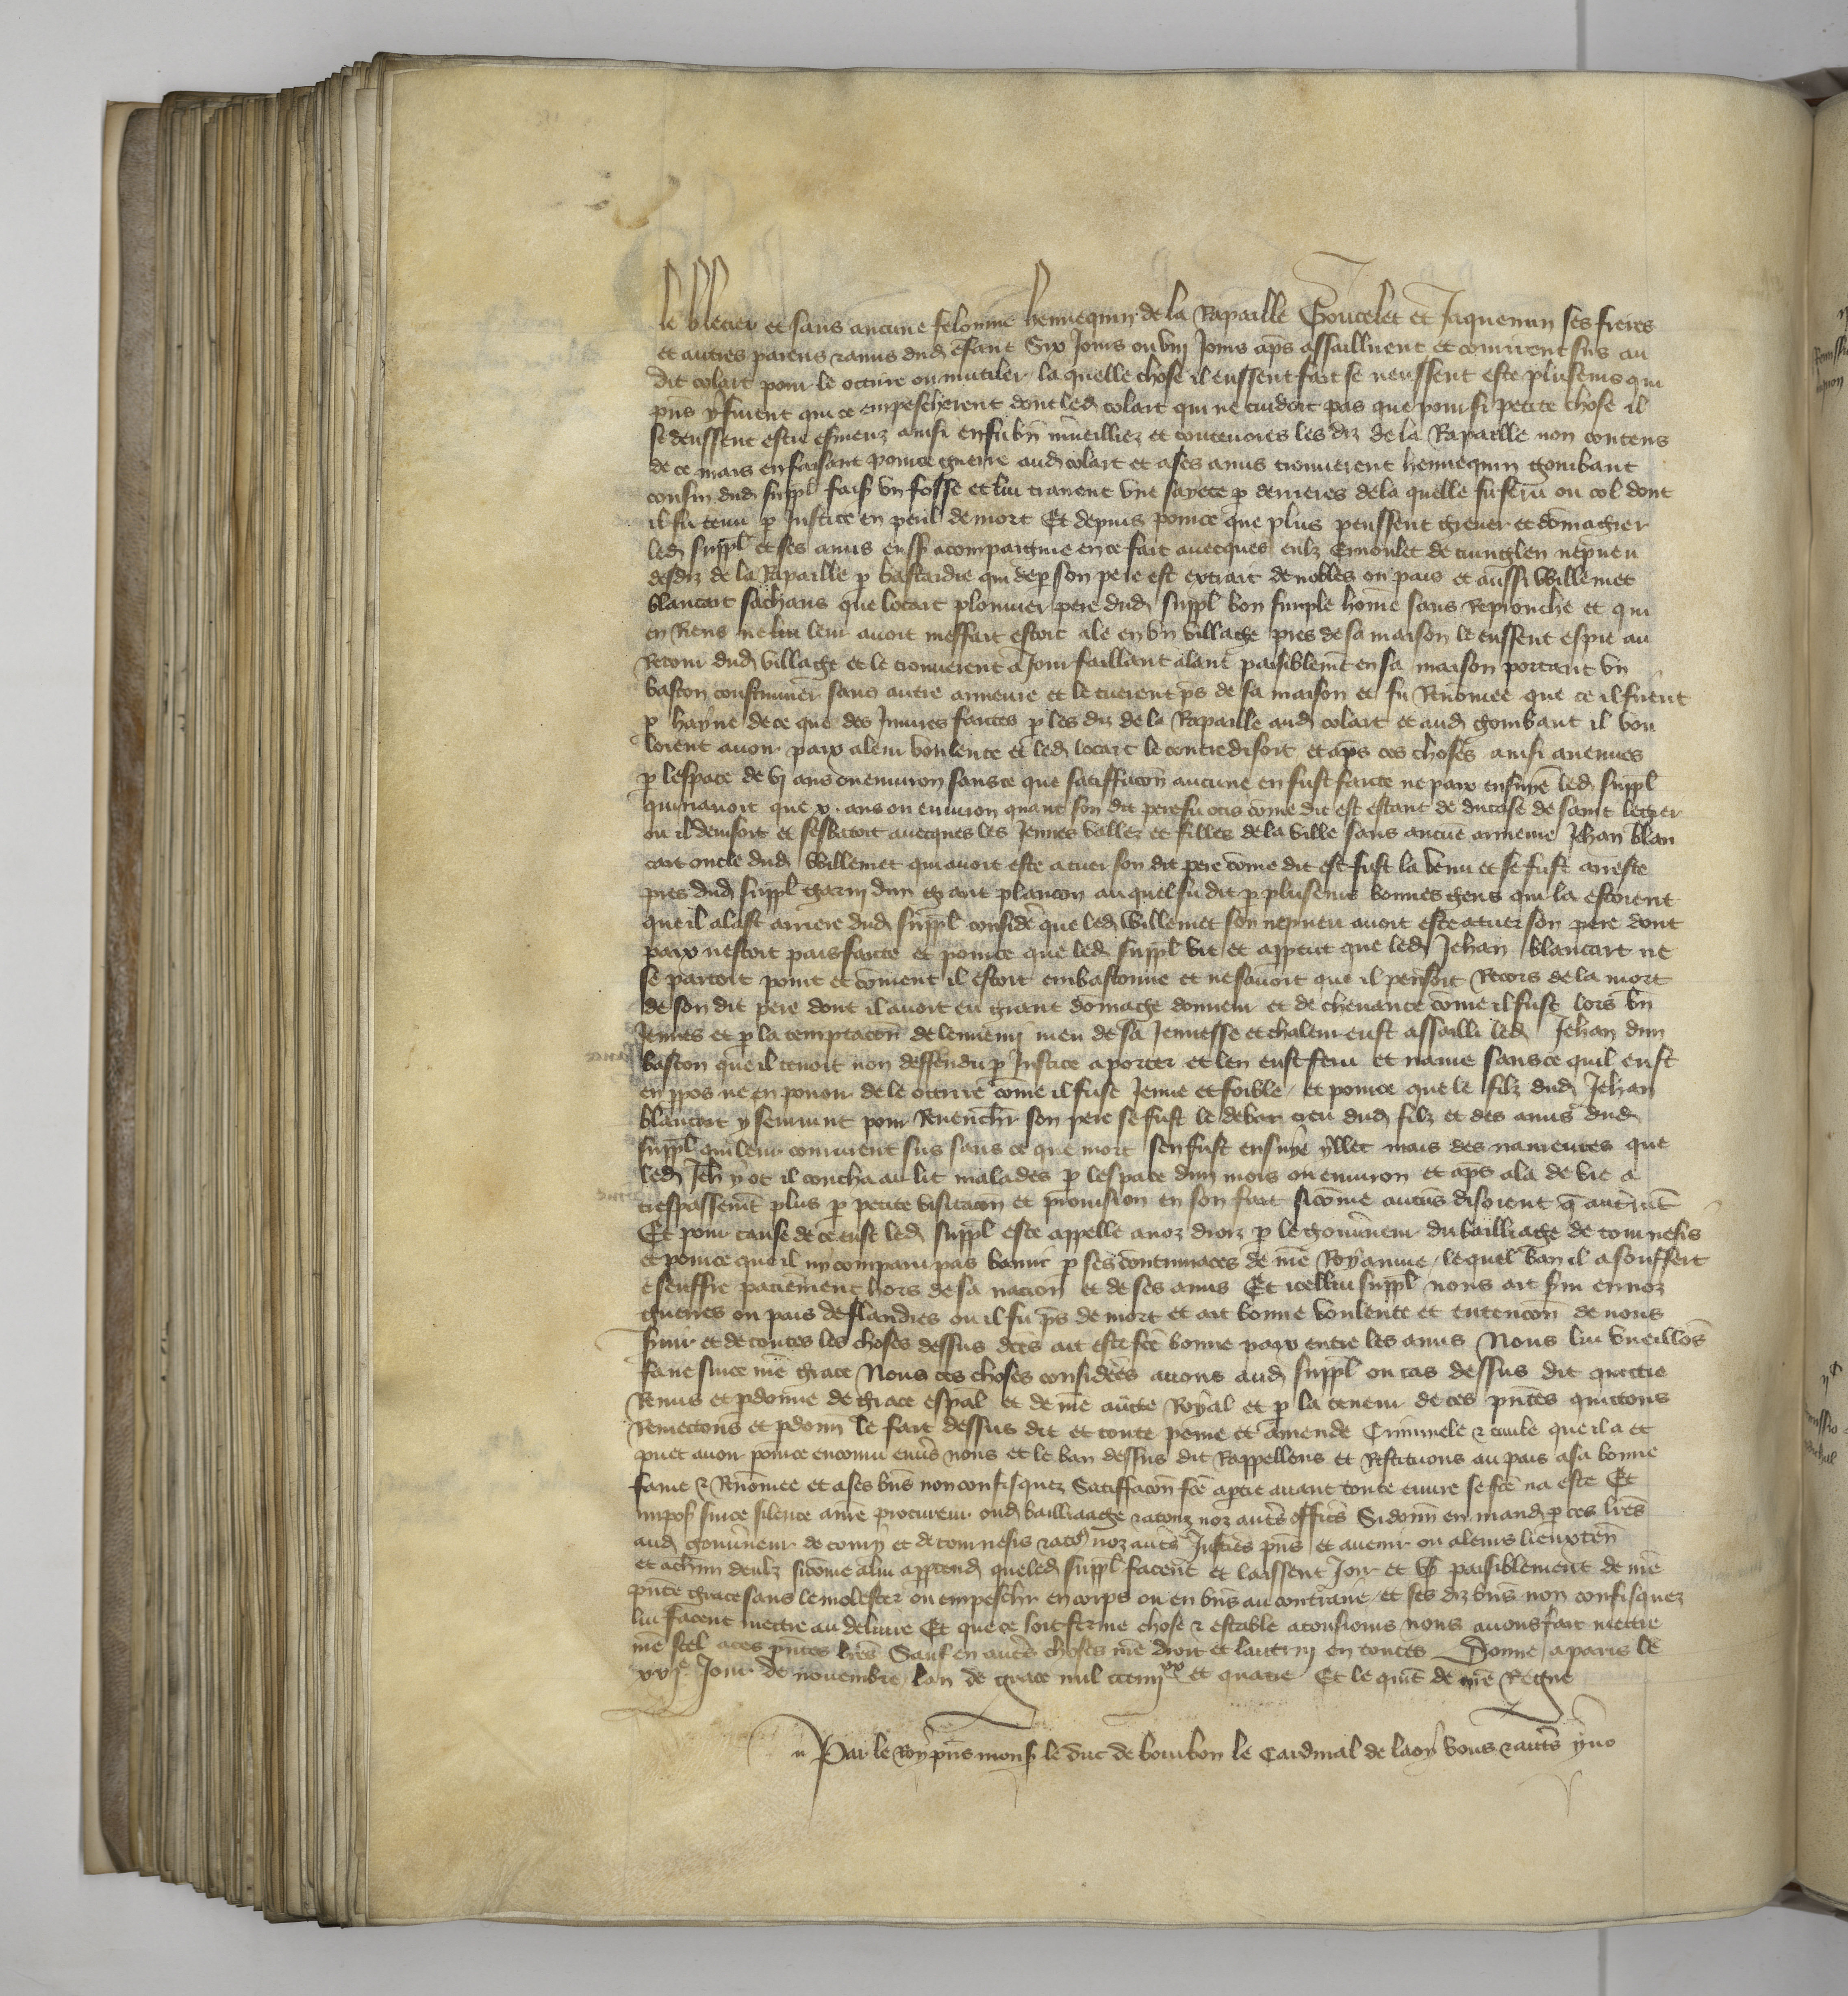 le blecier et sans aucune felonnie hennequin de la Rapaille Goucelet et Jaquemin ses freres
et autres parens & amis dud enfant Six Jours ou viij Jours aps assaillirent et coururent sus au
dit colart pour le occirre ou mutiler la quelle chose il eussent fait se neussent este pluseurs qui
pns y furent qui ce empescherent dont led colart qui ne cuidoit pas que pour si petite chose il
se deussent estre esmeuz ainsi en fu bn mueilliez et courouciés les diz de la Rapaille non contens
de ce mais en faisant pource guerre aud colart et a ses amis trouverent hennequin gombaut
cousin dud suppl sus vn fosse et lui trairent vne sayete p derrieres de la quelle fu feru ou col dont
il fu tenu p Justice en peril de mort Et depuis pource que plus peussent grever et domagier
led suppl et ses amis eussent acompaignie en ce fait avecques eulz Ernoulet de nepveu
desdiz de la Rapaille p bastardie qui de p son pere est extrait de nobles ou pais et aussi Willemet
blancart sachans que locart plommer pere dud suppl bon simple home sans Reprouche et qui
en Riens ne lui leur avoit meffait estoit ale en vn village pres de sa maison le eussent espie au
Retour dud village et le trouverent a Jour faillant alant paisiblemt en sa maison portant vn
baston sans autre armeure et le tuerent ps de sa maison et fu Renomee que ce il firent
p hayne de ce que des Iniures faites p les diz de la Rapaille aud colart et aud gombaut il vou
loient avoir paix a leur voulente et led locart le contredisoit et aps ces choses ainsi avenues
p lespace de vj ans ou environ sans ce que satiffacon aucune en fust faicte ne paix ensuye led suppl
qui navoit que x. ans ou environ quant son dit pere fu ocis come dit est estant de ducase de saint legier
ou il demsoit et sesbatoit avecques les Jeunes vallez et filles de la ville sans aucue armeure Jehan blan
cart oncle dud Willemet qui avoit este a tuer son dit pere come dit est fust la venu et se fust arreste
pres dud suppl garni dun grant plancon auquel fu dit p pluseurs bonnes gens qui la estoient
que il alast arriere dud suppl consideré que led Willemet son nepveu avoit este a tuer son pere dont
paix nestoit pais faicte et pource que led suppl vit et apperceut que led Jehan blancart ne
se partoit point et coment il estoit embastonne et ne savoit que il pensoit Recors de la mort
de son dit pere dont il avoit eu grant domage donneur et de chevance come il fust lors bn
Jeunes et p la temptacon de lennemj meu de sa Jeunesse et chaleur eust assailli led Jehan dun
baston que il tenoit non deffendu p Justice a porter et len eust feru et navre sans ce quil eust
en ppos ne en pouoir de le occirre come il fust Jeune et foible et pource que le filz dud Jehan
blancart y seurvint pour Revenchr son pere se fust le debat creu dud filz et des amis dud
suppl qui leur coururent sus sans ce que mort sen fust ensuye yllec mais des navreures que
led Jeh y ot il coucha au lit malades p lespace dun mois ou environ et aps ala de vie a
trespassemt plus p petite visitacion et provision en son fait sicome aucuns disoient q autrmt
Et pour cause de ce eust led suppl este appelle a noz droiz p le gouvneur du bailliage de tournesis
et pource que il ny comparu pas banni p ses contumaces de nre Royaume, le quel ban il a souffert
& seuffre paciement hors de sa nacion et de ses amis Et icellui suppl nous ait svi en noz
guerres ou pais de flandres ou il fu ps de mort et ait bonne voulente et entencon de nous
svir et de toutes les choses dessus dctes ait este fcte bonne paix entre les amis Nous lui vueillos
faire sur ce nre grace Nous ces choses considerees avons aud suppl ou cas dessus dit quictie
Remis et pdonne de grace espal et de nre aucte Royal et p la teneur de ces pntes quictons
Remectons et pdonn le fait dessus dit et toute peine et amende Criminele & civile que il a et
puet avoir pource encouru envs nous et le ban dessus dit Rappellons et Restituons au pais a sa bonne
fame & Renomee et a ses bns non confisquez Satiffacon fcte a ptie avant toute euvre se fcte na este Et
imposs sur ce silence a nre procureur oud bailliaage & a touz noz autrs offics Si donn en mand p ces lres
aud gouvneur de tourny et de tournesis & a touz noz autrs Justics pns et avenir ou a leurs lieuxten
et a chun deulz sicome a lui apptend que led suppl facent et laissent Joir et vser paisiblement de nre
pnte grace sans le molester ou empeschr en corps ou en bns au contraire et ses diz bns non confisquez
lui facent mettre au delivre Et que ce soit ferme chose & estable a tousiours nous avons fait mettre
nre scel a ces pntes lres Sauf en autrs choses nre droit et lautruj en toutes Donne a paris le
xxje Jour de novembre lan de grace mil ccciiijxx et quatre Et le quit de nre Regne
Par le Roy pns mons le duc de bourbon le Cardinal de laoy vous & autrs yvo